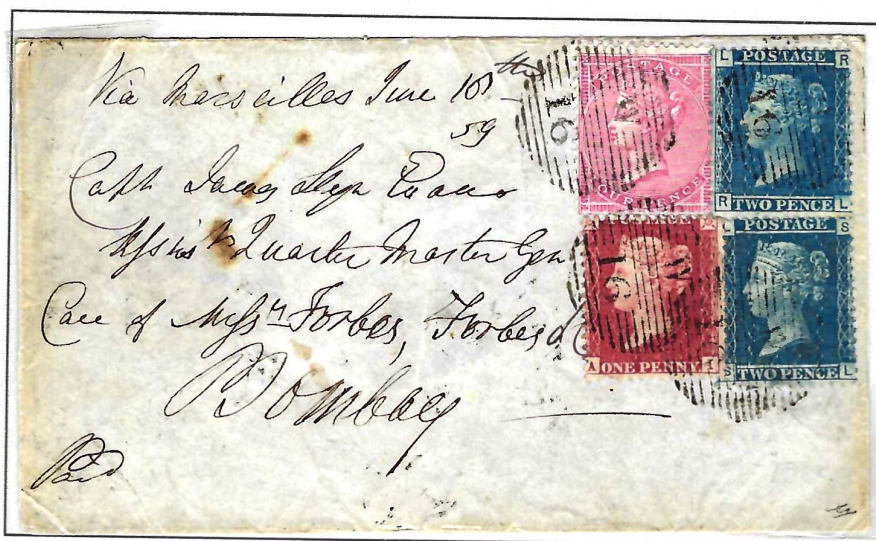 Via Marseilles June 10th
59
Capt James Llyn Evans
Assist Quarter Master Gen
Care of Messrs Forbes, Forbes & Co
Bombay
Paid
POSTAGE
FOUR PENCE
L POSTAGE R
R TWO PENCE L
A ONE PENNY
POSTAGE S
S TWO PENCE L
W 16